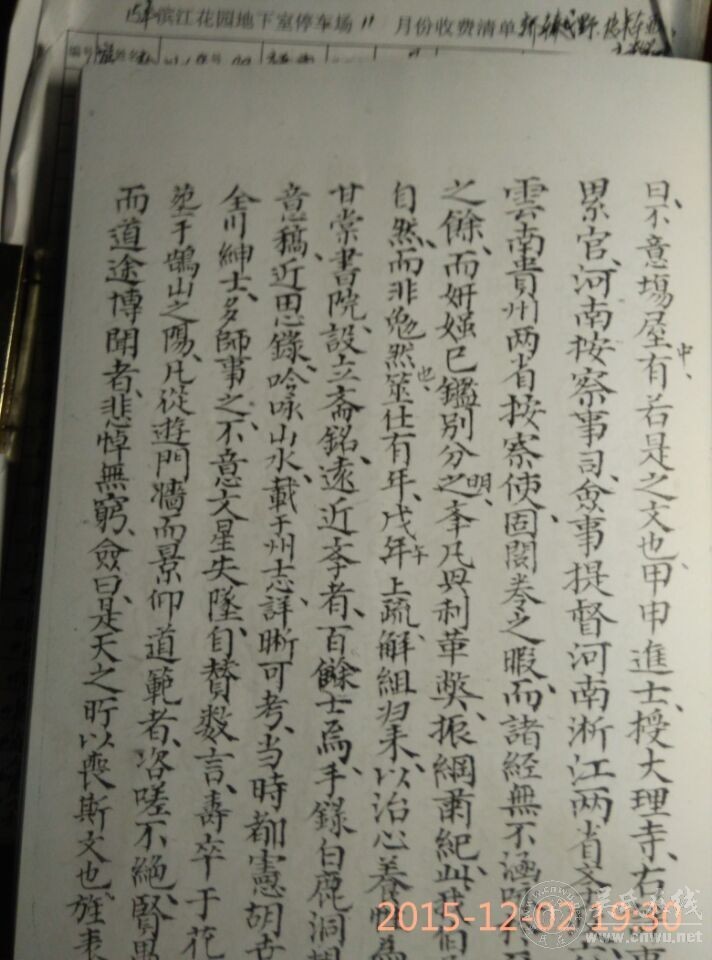 15年滨江花园地下室停车场11月份收费清单
编号
曰、不意場屋中有若是之文也、甲申進士、授大理寺、右
累官、河南按察事司、僉事提督河南浙江两省
雲南貴州两省按察使、因閱卷之暇、而諸經無不涵
之餘、而妍媸已鑑別分明之李凡興利革獘、振綱肅紀、此
自然、而非勉然也、筮仕有年、戊午年上疏、解組归来、以治心養性為
甘棠書院、設立斋銘、遠近李者、百餘士焉、手錄白鹿洞
意稿、近思錄、吟咏山水、載于州志、詳晰可考、当時都憲胡
全川紳士、多師事之、不意文星失墜、自賛数言、壽卒于花
塟于鵠山之陽、凡從遊門墻、而景仰道範者、咨嗟不絕、賢
而道途博聞者、悲悼無窮、僉曰、是天之所以喪斯文也、旌表
2015-12-02 19:30
吴氏在线
www.cnwu.net